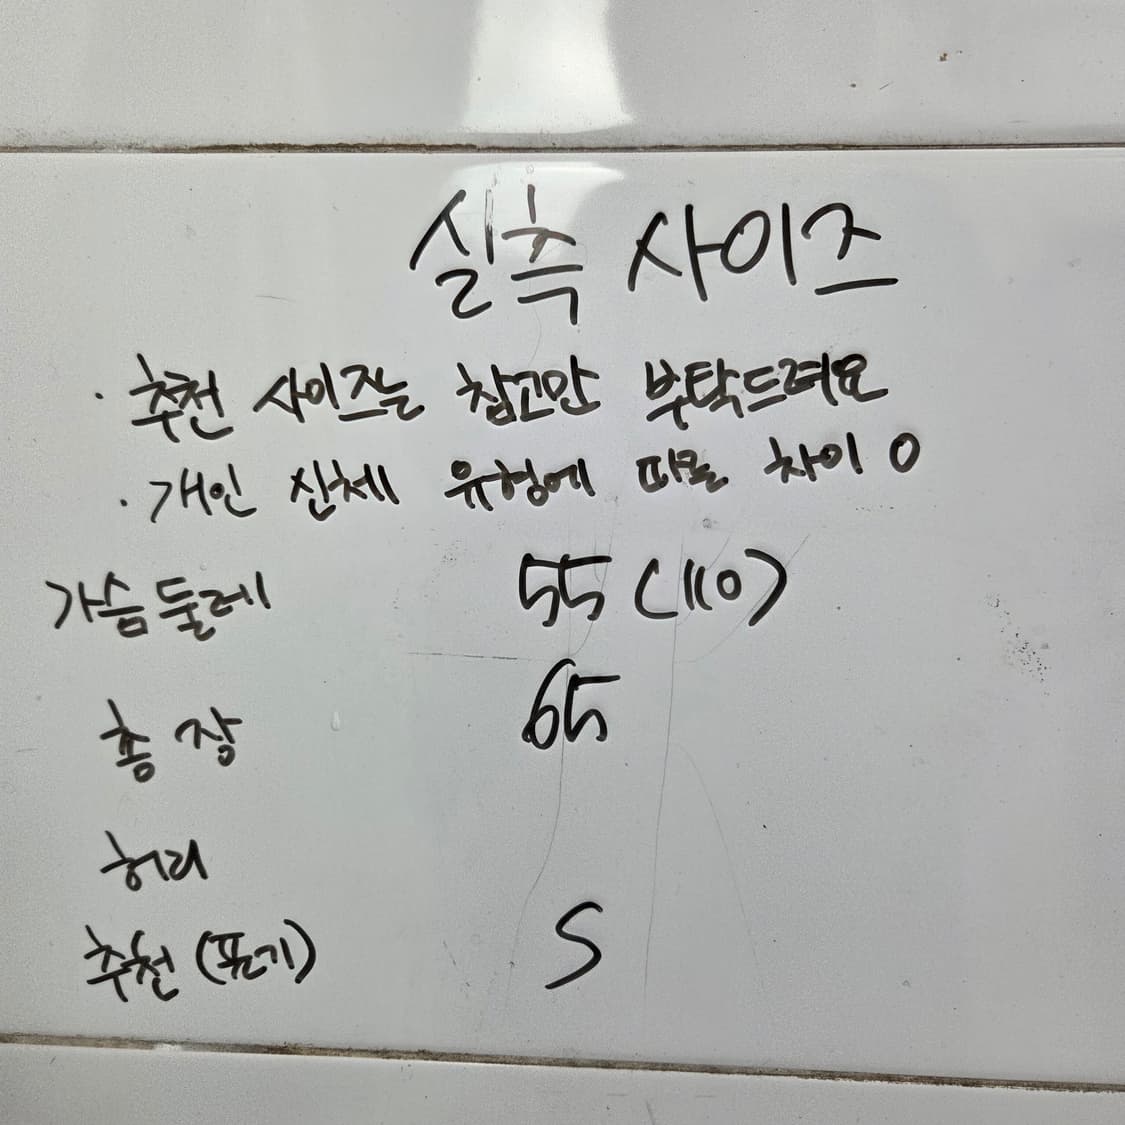 실측 사이즈
· 추천 사이즈는 참고만 부탁드려요
· 개인 신체 유형에 따른 차이 O
가슴둘레 55 (110)
총장 65
허리
추천 (표기) S